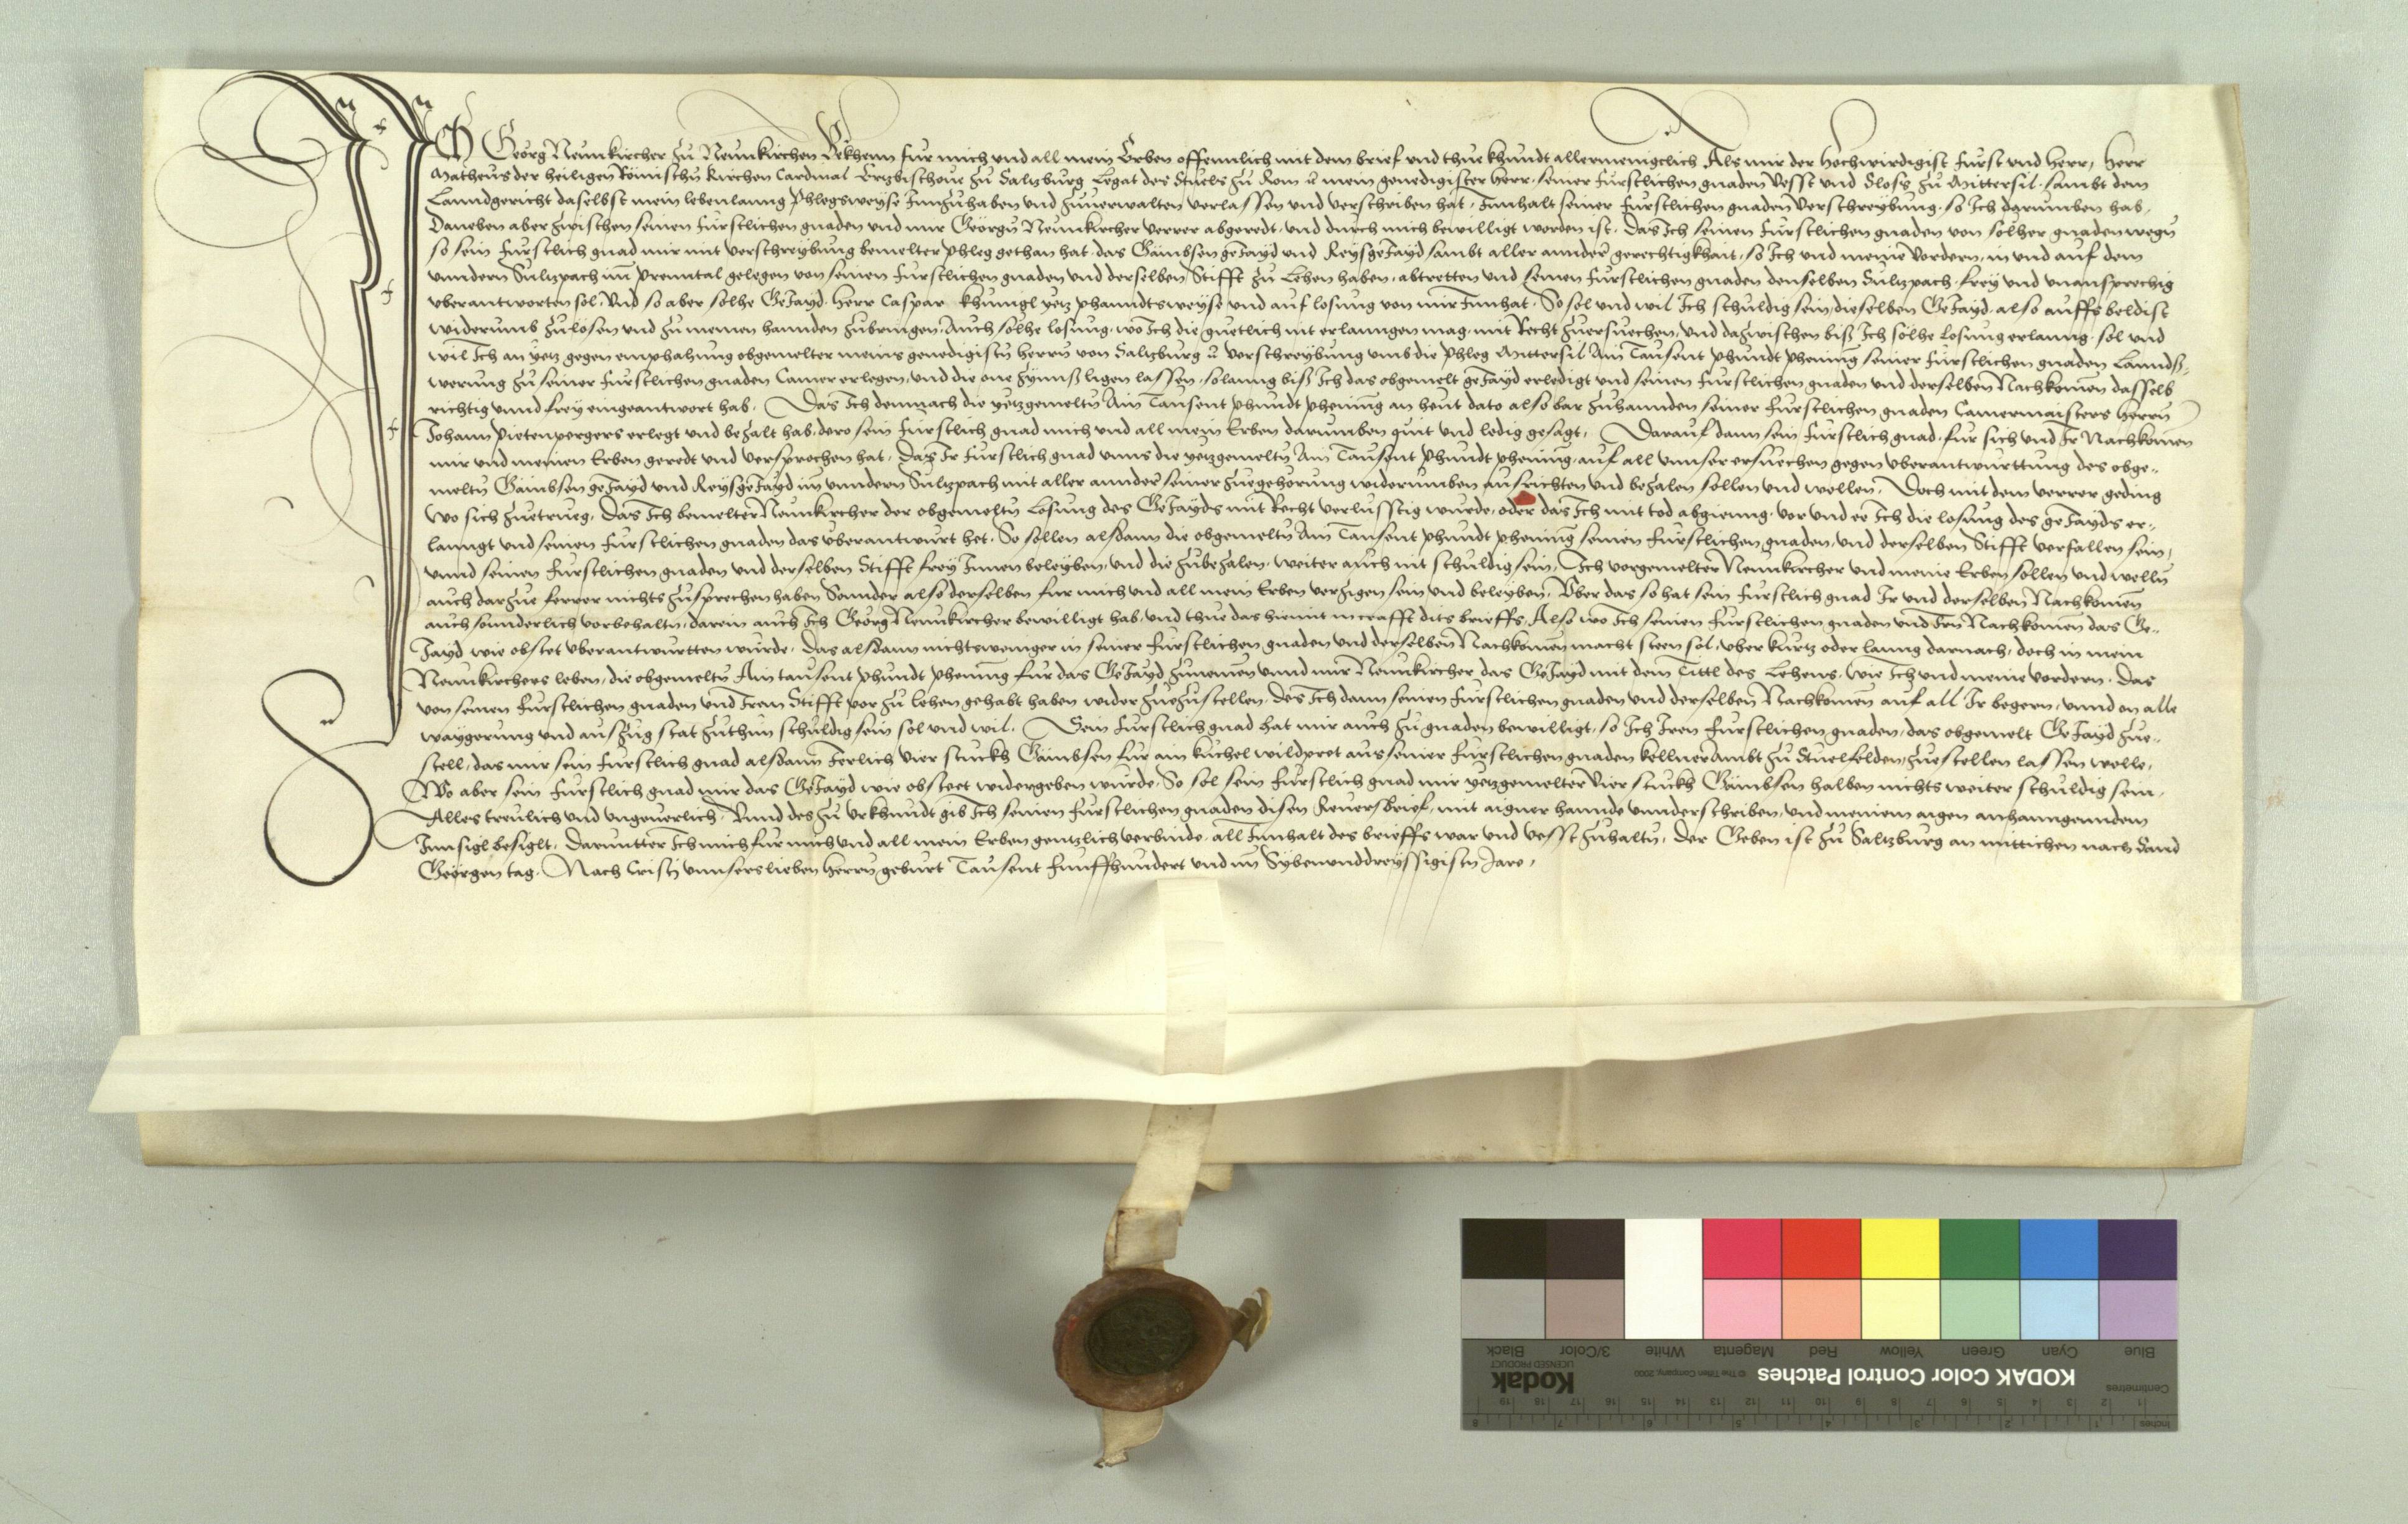 Ich Georg Neunkircher zu Neunkirchen Bekhenn fur mich und all mein Erben offennlich mit dem brief und thue khundt allermenigclich Als mir der hochwirdigist furst und herr, herr
Matheus der heiligen Römischn kirchen Cardinal Ertzbischove zu Saltzburg Legat des Stuels zu Rom mein genedigister herr seiner furstlichen gnaden Vesst und Slosß zu Mittersil sambt dem
Lanndgericht daselbst mein lebenlanng Phlegsweyse Innzuhaben und zuverwalten verlassen und verschriben hat, Innhalt seiner furstlichen gnaden Verschreybung so Ich darumben hab,
Daneben aber zwischen seinen furstlichen gnaden und mir Georgn Neunkircher verrer abgeredt und durch mich bewilligt worden ist, Das Ich seinen furstlichen gnaden von solher gnaden wegn
so sein furstlich gnad mir mit verschreybung bemelter phleg gethan hat, das Gämbsen geJayd und ReysgeJayd sambt aller annder gerechtigkhait, so Ich und meine vordern, in und auf dem
unndern Sultzpach im Prenntal gelegen von seinen furstlichen gnaden und derselben Stifft zu Lehen haben, abtretten und seinen furstlichen gnaden denselben Sultzpach frey und unansprechig
uberantworten sol, Und so aber solhe GeJayd herr Caspar khuingl yetz phanndtsweyse und auf losung von mir Innhat, So sol und wil Ich schuldig sein, dieselben GeJayd, also auffs beldist
widerumb zulösen und zu meinen hannden zubringen, Auch solhe losung, wo Ich die guetlich nit erlanngen mag, mit Recht zuersuechen, und dazwischen biß Ich solhe Losung erlanng, sol und
wil Ich an yetz gegen emphahung obgemelter meins genedigistn herrn von Saltzburg Verschreybung umb die Phleg Mittersil Ain Tausent phundt phening seiner furstlichen gnaden Lanndß-
werung zu seiner furstlichen gnaden Camer erlegen, und die one zynnß ligen lassen, solanng biß Ich das obgemelt geJayd erledigt und seinen furstlichen gnaden und derselben Nachkomen dasselb
richtig unnd frey eingeantwort hab, Das Ich demnach die yetzgemeltn Ain Tausent phundt phening an heut dato also bar zuhannden seiner furstlichen gnaden Camermaisters herrn
Johann Pietenpergers erlegt und bezalt hab, dero sein furstlich gnad mich und all mein Erben darumben quit und ledig gesagt, Darauf dann sein furstlich gnad, fur sich und Ir Nachkomen
mir und meinen Erben geredt und versprochen hat, Das Ir furstlich gnad unns die yetzgemeltn Ain Tausent phundt phening, auf all unnser ersuechen gegen uberantwurttung des obge-
meltn Gämbsen geJayd und ReysgeJayd im unndern Sultzpach mit aller annder seiner zuegehorung widerumben ausrichten und bezalen sollen und wellen, Doch mit dem verrer geding
Wo sich zuetrueg, Das Ich bemelter Neunkircher der obgemeltn Losung des GeJayds mit Recht verlusstig wurde, oder das Ich mit tod abgienng, vor und ee Ich die losung des geJayds er-
lanngt und seinen furstlichen gnaden das uberantwurt het, So sollen alsdann die obgemeltn Ain Tausent phundt phening seinen furstlichen gnaden, und derselben Stifft verfallen sein,
unnd seinen furstlichen gnaden und derselben Stifft frey Innen beleyben, und die zubezalen, weiter auch nit schuldig sein, Ich vorgemelter Neunkircher und meine Erben sollen und welln
auch darzue ferrer nichts zusprechen haben Sonnder also derselben fur mich und all mein Erben verzigen sein und beleyben, Uber das so hat sein furstlich gnad Ir und derselben Nachkomen
auch sonnderlich vorbehaltn, darein auch Ich Georg Neunkircher bewilligt hab, und thue das hiemit in crafft dits brieffs, Also wo Ich seinen furstlichen gnaden und Irn Nachkomen das Ge-
Jayd wie obstet uberantwurtten wurde, Das alsdann nichtsweniger in seiner furstlichen gnaden und derselben Nachkomen macht steen sol, uber kurtz oder lanng darnach, doch in mein
Neunkirchers leben, die obgemeltn Ain tausent phundt phening fur das GeJayd zunemen unnd mir Neunkircher das GeJayd mit dem Tittl des Lehens, wie Ich und meine vordern, Das
von seinen furstlichen gnaden und Iren Stifft vor zu lehen gehabt haben wider zuezustellen, des Ich dann seinen furstlichen gnaden und derselben Nachkomen auf all Ir begern, unnd on alle
waygerung und auszug stat zuthun schuldig sein sol und wil, Sein furstlich gnad hat mir auch zu gnaden bewilligt, so Ich Iren furstlichen gnaden, das obgemelt GeJayd zue-
stell, das mir sein furstlich gnad alsdann Jerlich vier stuckh Gämbsen fur ain kuchel wildpret aus seiner furstlichen gnaden kellner Ambt zu Stuelfelden, zuestellen lassen welle,
Wo aber sein furstlich gnad mir das GeJayd wie obsteet widergeben wurde, So sol sein furstlich gnad mir yetzgemelter vier stuckh Gämbsen halben nichts weiter schuldig sein,
Alles treulich und ungeverlich, Unnd des zu Urkhundt gib Ich seinen furstlichen gnaden disen Reversbrief, mit aigner hannde unnderschriben, und meinem aigen anhanngenndem
Innsigl besiglt, Darunnter Ich mich fur mich und all mein Erben genntzlich verbinde, all Innhalt des brieffs war und vesst zuhaltn, Der Geben ist zu Saltzburg an mittichen nach sand
Georgen tag, Nach Cristi unnsers lieben herrn geburt Tausent funffhundert und im Sybenunddreyssigistn Jare,
Blue
Cyan
Green
Yellow
Red
Magenta
White
3/Color
Black
KODAK Color Control Patches
© The Tiffen Company, 2000
Kodak
LICENSED PRODUCT
Centimetres
1 2 3 4 5 6 7 8 9 10 11 12 13 14 15 16 17 18 19
Inches
1 2 3 4 5 6 7 8